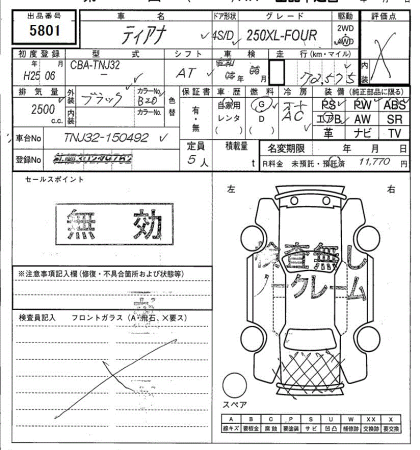 出品番号 車名 ドア形状 グレード 駆動 評価点
5801 ティアナ 4S/D 250XL-FOUR 2WD 4WD X
初度登録 型式 シフト 車検 走行(km・マイル) 内装
H25 年 06 月 CBA-TNJ32 AT 年 月 72,575
排気量 外装 ブラック カラーNo. B20 色替 保証書 車歴 燃料 冷房 装備(純正部品に限る)
2500 c.c. 内装 カラーNo. 有・無 自家用 レンタ G D AC PS PW ABS
エアB AW SR
革 ナビ TV
車台No TNJ32-150492 定員 積載量 名変期限 年 月 日
登録No 5人 t R料金 未預託・預託済 11,770
セールスポイント 左 右
無効
検査無し
ノークレーム
※注意事項記入欄(修復・不具合箇所および状態等)
検査員記入 フロントガラス(A・飛石、×要ス)
スペア
A B C P S U W X XX X
線キズ 要板金 腐蝕 要塗装 サビ 凹凸 補修跡 交換跡 要交換